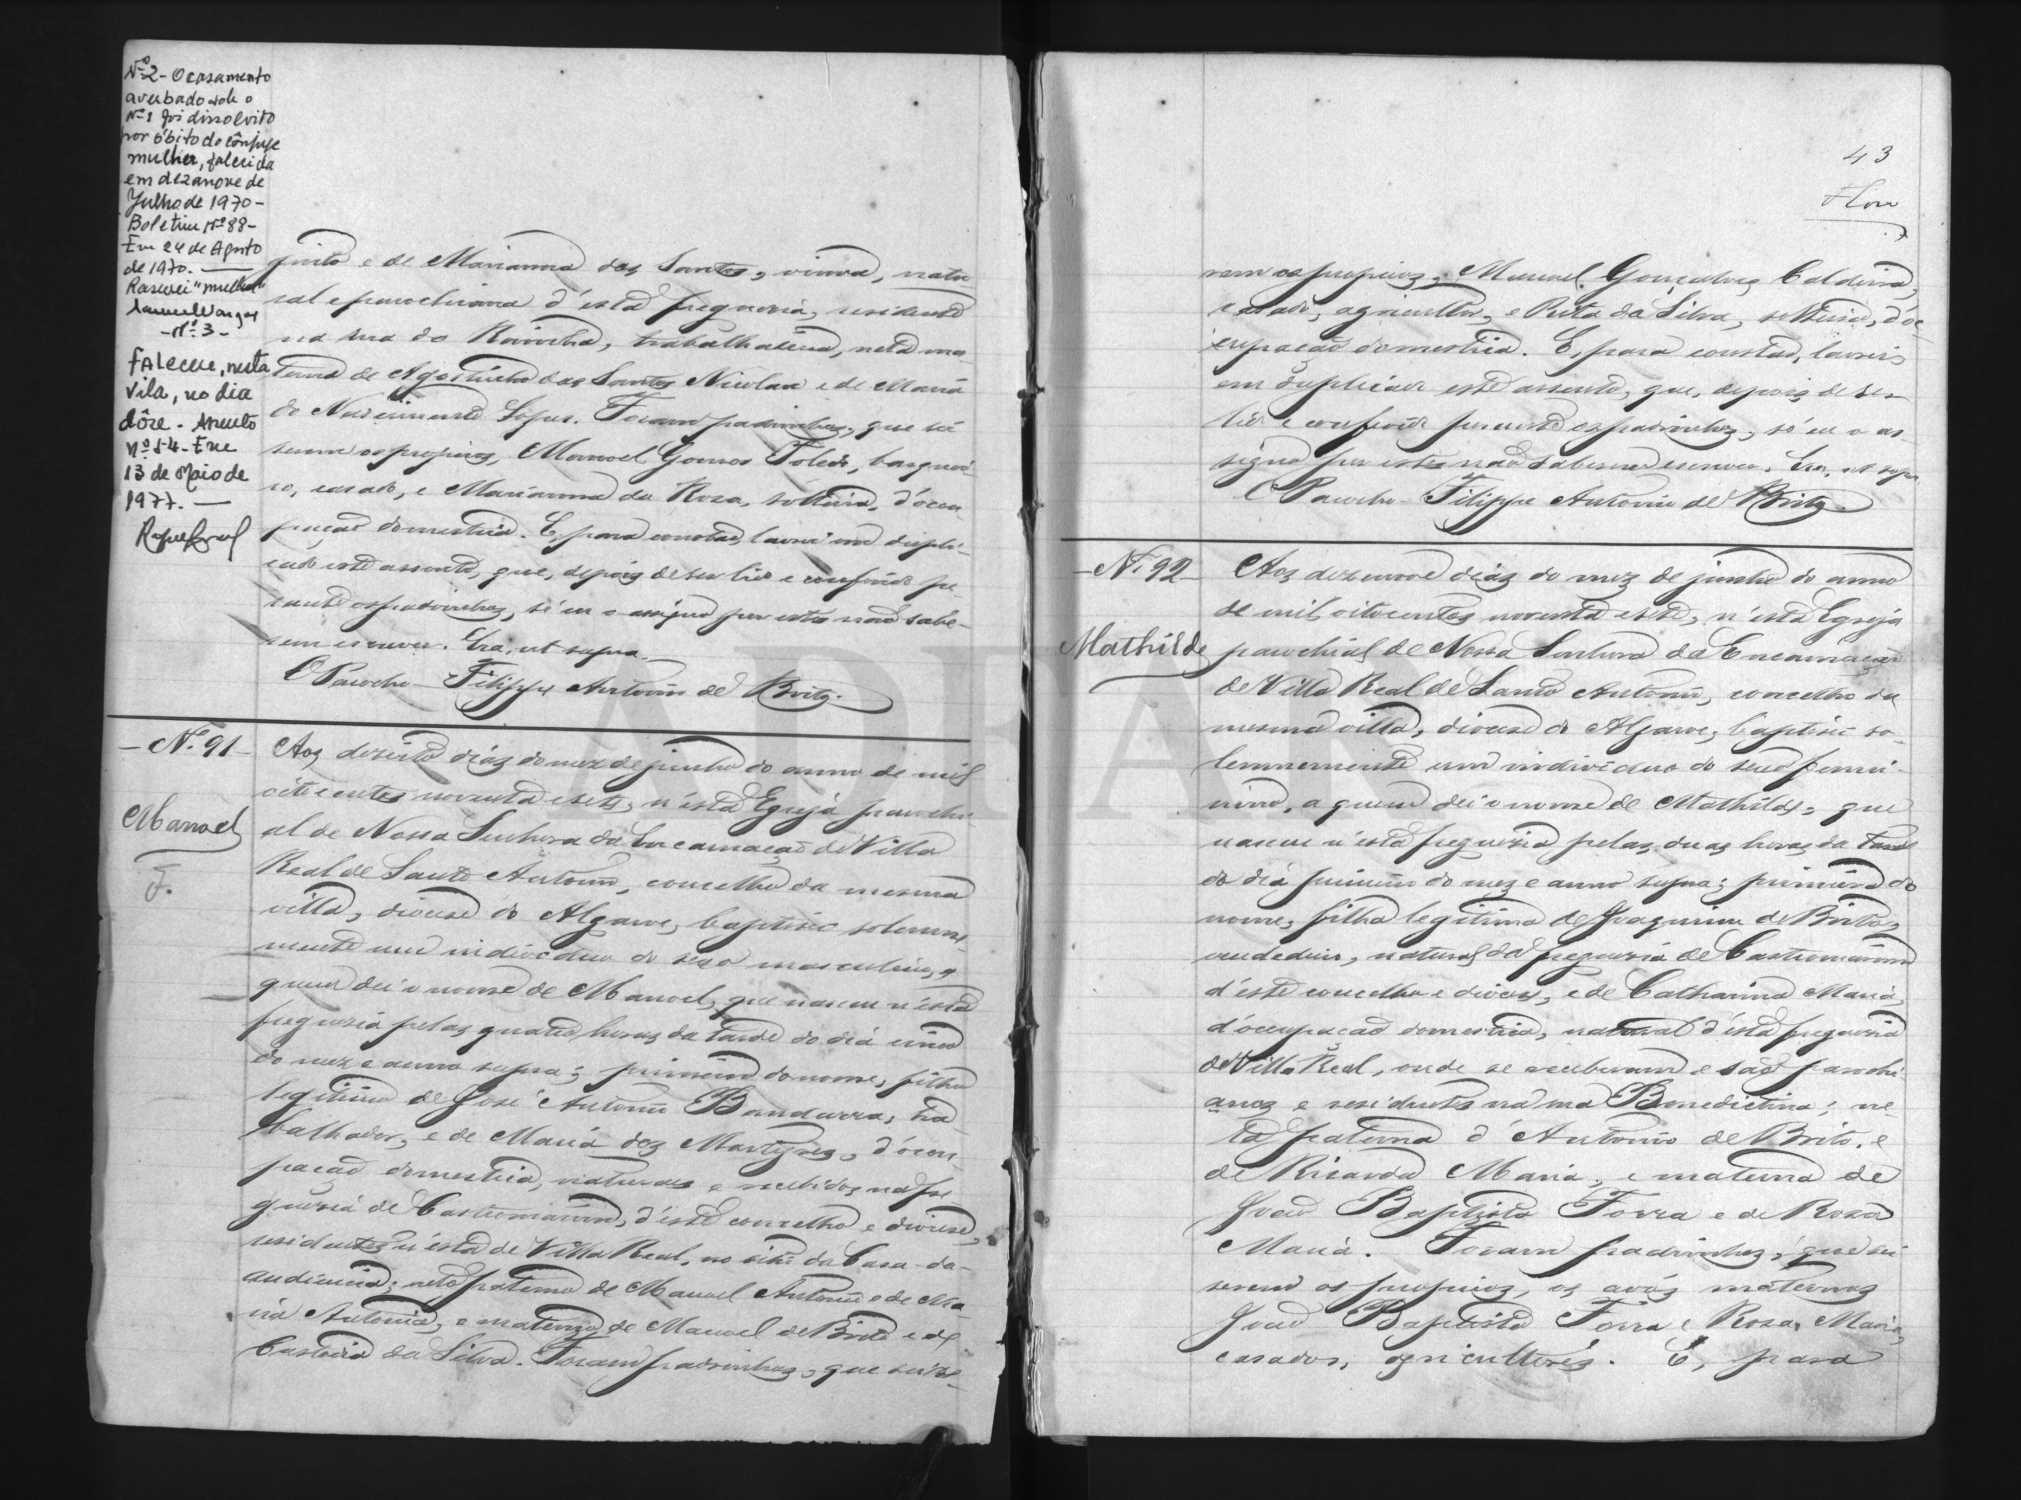 Nº 2 - O casamento
averbado sob o
nº 1 foi dissolvido
por óbito do cônjuge
mulher, falecida
em dezanove de
Julho de 1970 -
Boletim Nº 88 -
Em 24 de Agosto
de 1970. —
Rasurei "mulher"
- Nº 3 -
Faleceu, nesta
vila, no dia
dôze - Assento
nº 54 - Em
13 de Maio de
1977. —
e de Marianna dos Santos, viuva, natu
ral e parochiana d'esta freguezia, residente
na rua da Rainha, trabalhadeira, neta ma
terna de Agostinho dos Santos Nicolau e de Maria
do Nascimento Lopes. Foram padrinhos, que sei
serem os proprios, Manoel Gomes Toledo, barquei
ro, casado, e Marianna da Rosa, solteira, d'occu
pação domestica. E, para constar, lavrei em dupli-
cado este assento, que, depois de ser lido e conferido pe-
rante os padrinhos, só eu o assigno por estes não sabe-
rem escrever. Era, ut supra.
O Parocho - Filippe Antonio de Brito.
- Nº 91 -
Manoel
F.
Aos dezoito dias do mez de junho do anno de mil
oitocentos noventa e sete, n'esta Egreja parochi
al de Nossa Senhora da Encarnação de Villa
Real de Santo Antonio, concelho da mesma
villa, diocese do Algarve, baptisei solemne
mente um individuo do sexo masculino, a
quem dei o nome de Manoel, que nasceu n'esta
freguezia pelas quatro horas da tarde do dia cinco
do mez e anno supra; primeiro do nome, filho
legitimo de José Antonio Bandurra, tra
balhador, e de Maria dos Martyres, d'occu
pação domestica, naturaes e recebidos na fre
guezia de Castromarim, d'este concelho e diocese,
residentes n'esta de Villa Real, no sitio da Casa-da-
audiencia; neto paterno de Manoel Antonio e de Ma
ria Antonia, e materno de Manoel de Brito e de
Custodia da Silva. Foram padrinhos, que sei se-
43
rem os proprios, Manoel Gonçalves Caldeira,
casado, agricultor, e Rita da Silva, solteira, d'oc
cupação domestica. E, para constar, lavrei
em duplicado este assento, que, depois de ser
lido e conferido perante os padrinhos, só eu o as-
signo por estes não saberem escrever. Era, ut supra
O Parocho - Filippe Antonio de Brito.
- Nº 92 -
Mathilde
Aos dezenove dias do mez de junho do anno
de mil oitocentos noventa e sete, n'esta Egreja
parochial de Nossa Senhora da Encarnação
de Villa Real de Santo Antonio, concelho da
mesma villa, diocese do Algarve, baptisei so-
lemnemente um individuo do sexo femi-
nino, a quem dei o nome de Mathilde, que
nasceu n'esta freguezia pelas duas horas da tarde
do dia primeiro do mez e anno supra; primeira do
nome, filha legitima de Joaquim de Brito,
vendedeiro, natural da freguezia de Castromarim
d'este concelho e diocese, e de Catharina Maria,
d'occupação domestica, natural d'esta freguezia
de Villa Real, onde se receberam e são parochi
anos e residentes na rua Benedictina; ne
ta paterna d'Antonio de Brito, e
de Ricarda Maria, e materna de
João Baptista Forra e de Rosa
Maria. Foram padrinhos, que sei
serem os proprios, os avós maternos
João Baptista Forra e Rosa Maria,
casados, agricultores. E, para